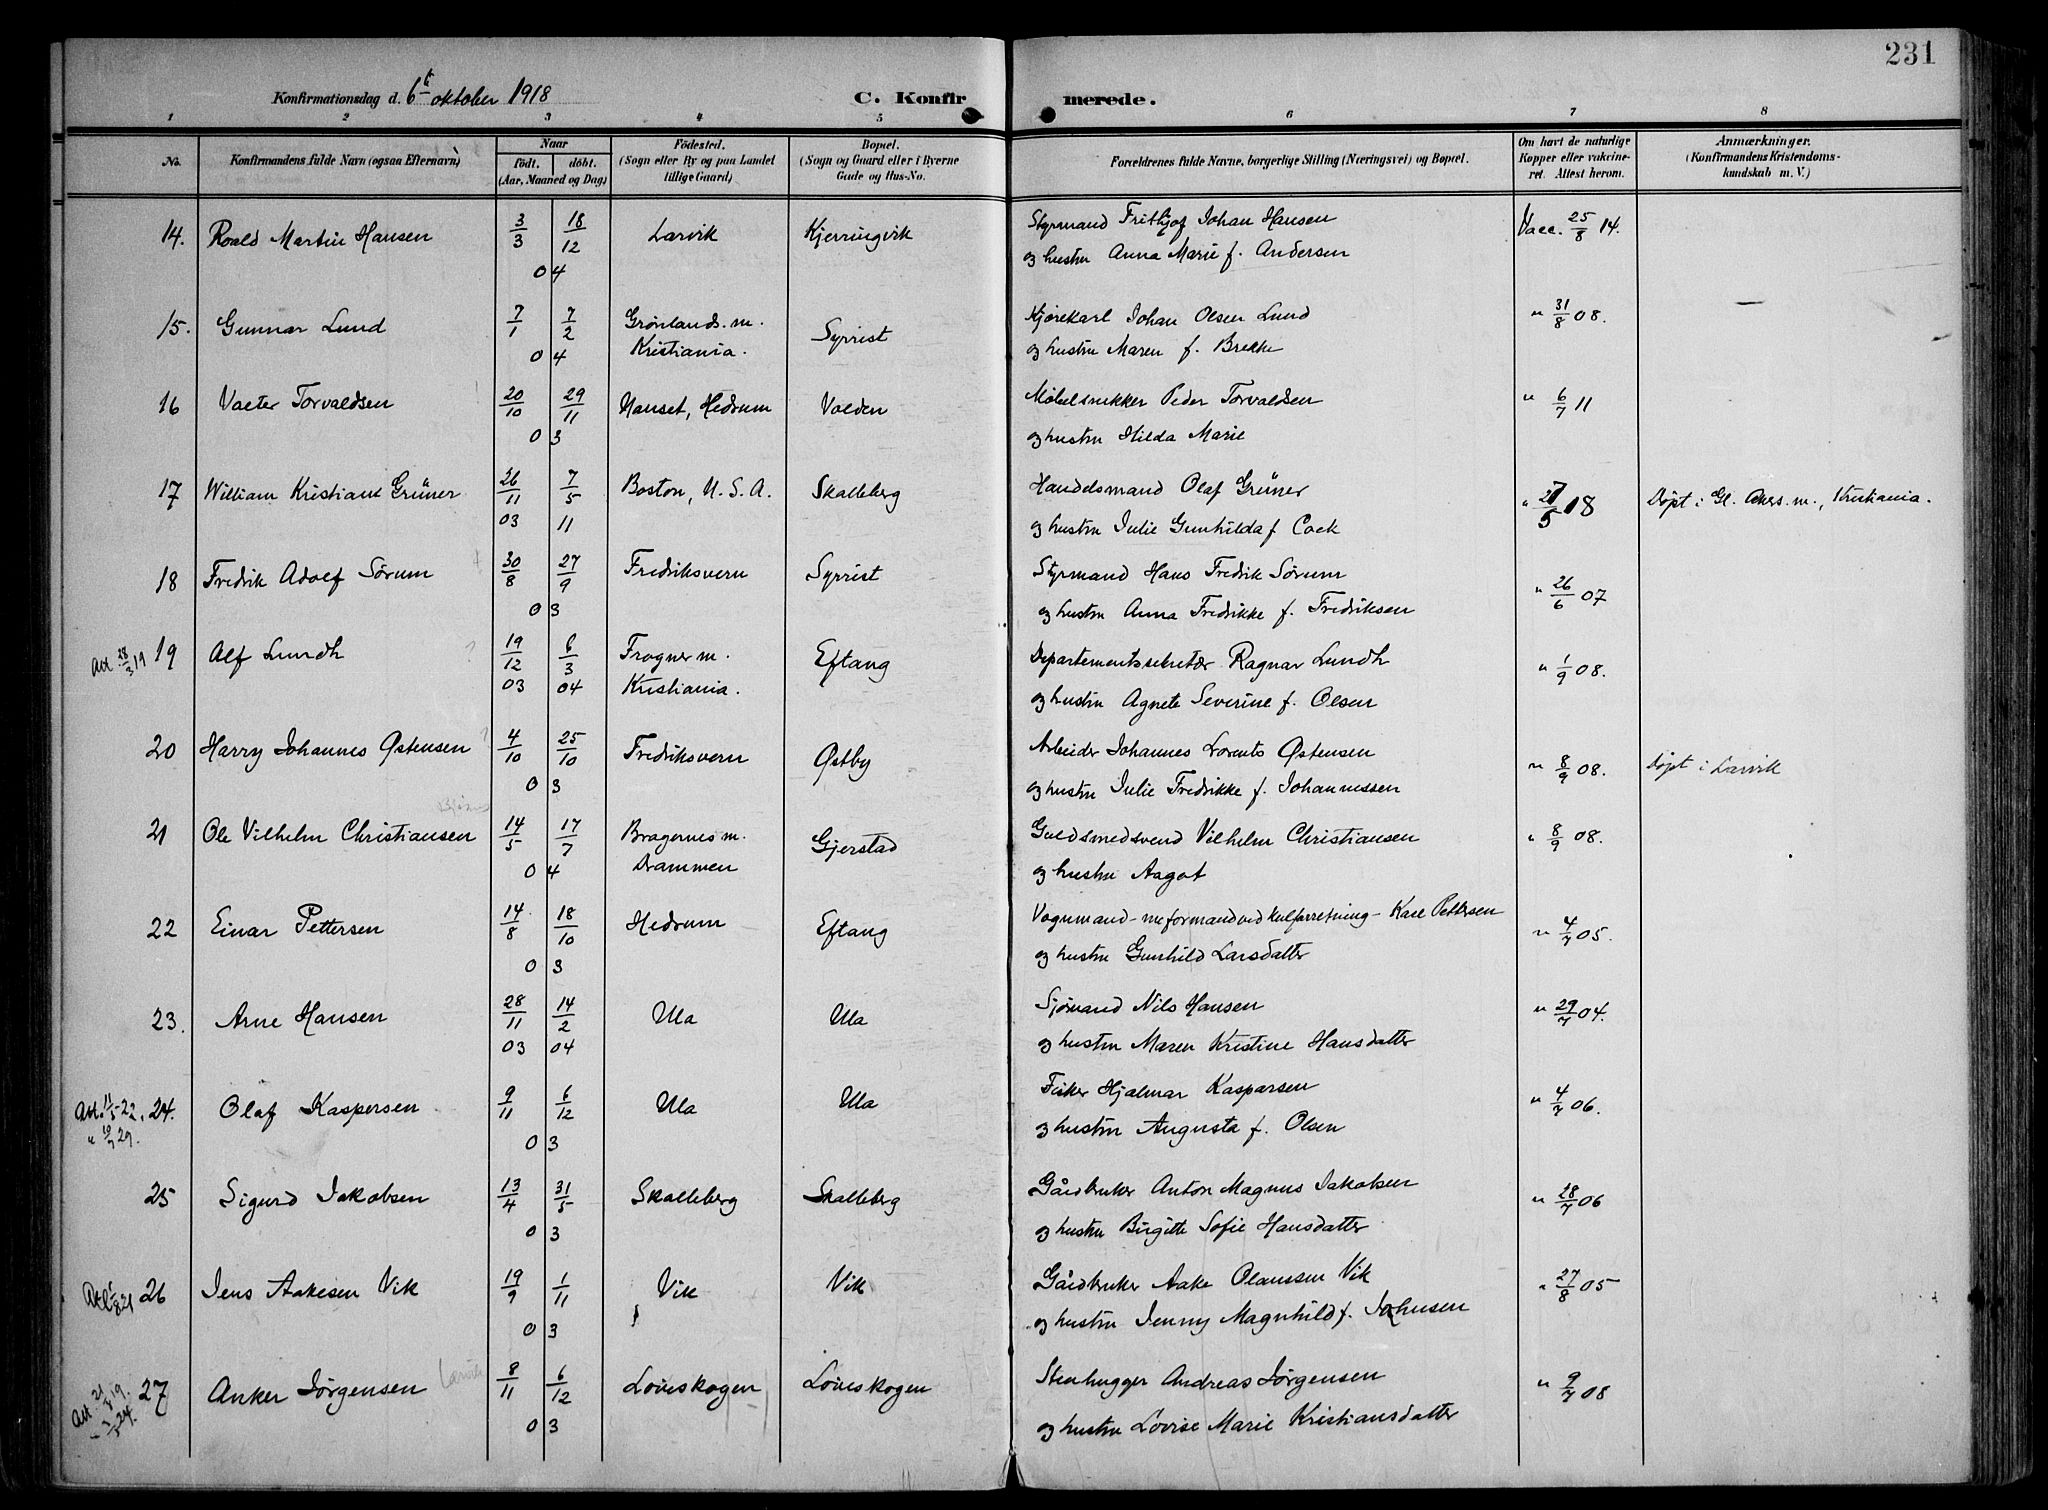 231
Konfirmationsdag d. 6te oktober 1918 C. Konfirmerede.
1 2 3 4 5 6 7 8
No. Konfirmandens fulde Navn (ogsaa Efternavn) Naar født. døbt. (Aar, Maaned og Dag) Fødested. (Sogn eller By og paa Landet tillige Gaard) Bopæl. (Sogn og Gaard eller i Byerne Gade og Hus-No. Forældrenes fulde Navne, borgerlige Stilling (Næringsvei) og Bopæl. Om havt de naturlige Kopper eller vakcineret. Attest herom. Anmærkninger. (Konfirmandens Kristendomskundskab m. V.)
14. Roald Martin Hansen 3/3 18/12 Larvik Kjerringvik Styrmand Frithjof Johan Hansen Vacc. 25/8 14.
04 og hustru Anna Marie f. Andersen
15. Gunnar Lund 7/1 7/2 Grønlands m. Syrrist Kjørekarl Johan Olsen Lund " 31/8 08.
04 Kristiania. og hustru Maren f. Brekke
16 Valter Torvaldsen 20/10 29/11 Nanset, Hedrum Valden Møbelsnekker Peder Torvaldsen " 6/7 11
03 og hustru Hilda Marie
17 William Kristiant Grüner 26/11 7/5 Boston, U.S.A. Skalleberg Handelsmand Olaf Grüner " 27/5 18 Døpt i Gl. Akers m., Kristiania.
03 11 og hustru Julie Gunhilda f. Cock
18 Fredrik Adolf Sørum 30/8 27/9 Fredriksvern Syrrist Styrmand Hans Fredrik Sørum " 26/6 07
03 og hustru Anna Fredrikke f. Fredriksen
Att. 28/3 19 19 Alf Lundh 19/12 6/3 Frogner m. Eftang Departementssekretær Ragnar Lundh " 1/9 08.
03 04 Kristiania. og hustru Agnete Severine f. Olsen
20 Harry Johannes Østensen 4/10 25/10 Fredriksvern Østby Arbeider Johannes Lorents Østensen " 8/9 08. Døpt i Larvik
03 og hustru Julie Fredrikke f. Johannessen
21 Ole Vilhelm Christiansen 14/5 17/7 Bragernes m. Gjerstad Guldsmedsvend Vilhelm Christiansen " 8/9 08.
04 Drammen og hustru Aagot
22 Einar Pettersen 14/8 18/10 Hedrum Eftang Vognmand - nu formand ved kulforretning - Karl Pettersen " 4/7 05.
03 og hustru Gunhild Larsdatter
23. Arne Hansen 28/11 14/2 Ula Ula Sjømand Nils Hansen " 29/7 04.
03 04 og hustru Maren Kristine Hansdatter
Att. 11/5-22. 24. Olaf Kaspersen 9/11 6/12 Ula Ula Fisker Hjalmar Kaspersen " 4/7 06.
" 10/7 29. 03 og hustru Augusta f. Olsen
25 Sigurd Jakobsen 13/4 31/5 Skalleberg Skalleberg Gårdbruker Anton Magnus Jakobsen " 28/7 06
03 og hustru Birgitte Sofie Hansdatter
26 Jens Aakesen Vik 19/9 1/11 Vik Vik Gårdbruker Aake Olaussen Vik " 27/8 05
03 og hustru Jenny Magnhild f. Johnsen
27 Anker Jørgensen 8/11 6/12 Løveskogen Løveskogen Stenhugger Andreas Jørgensen " 9/7 08
03 og hustru Lovise Marie Kristiansdatter